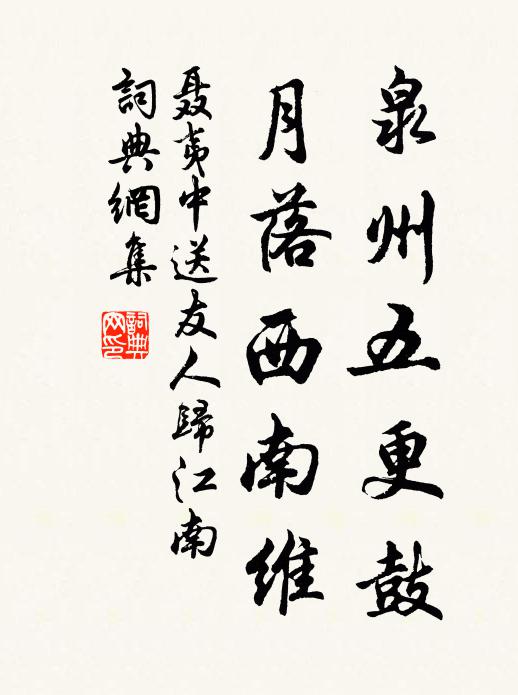 泉州五更鼓
月落西南維
聶夷中送友人歸江南
詞典網集
詞典網印